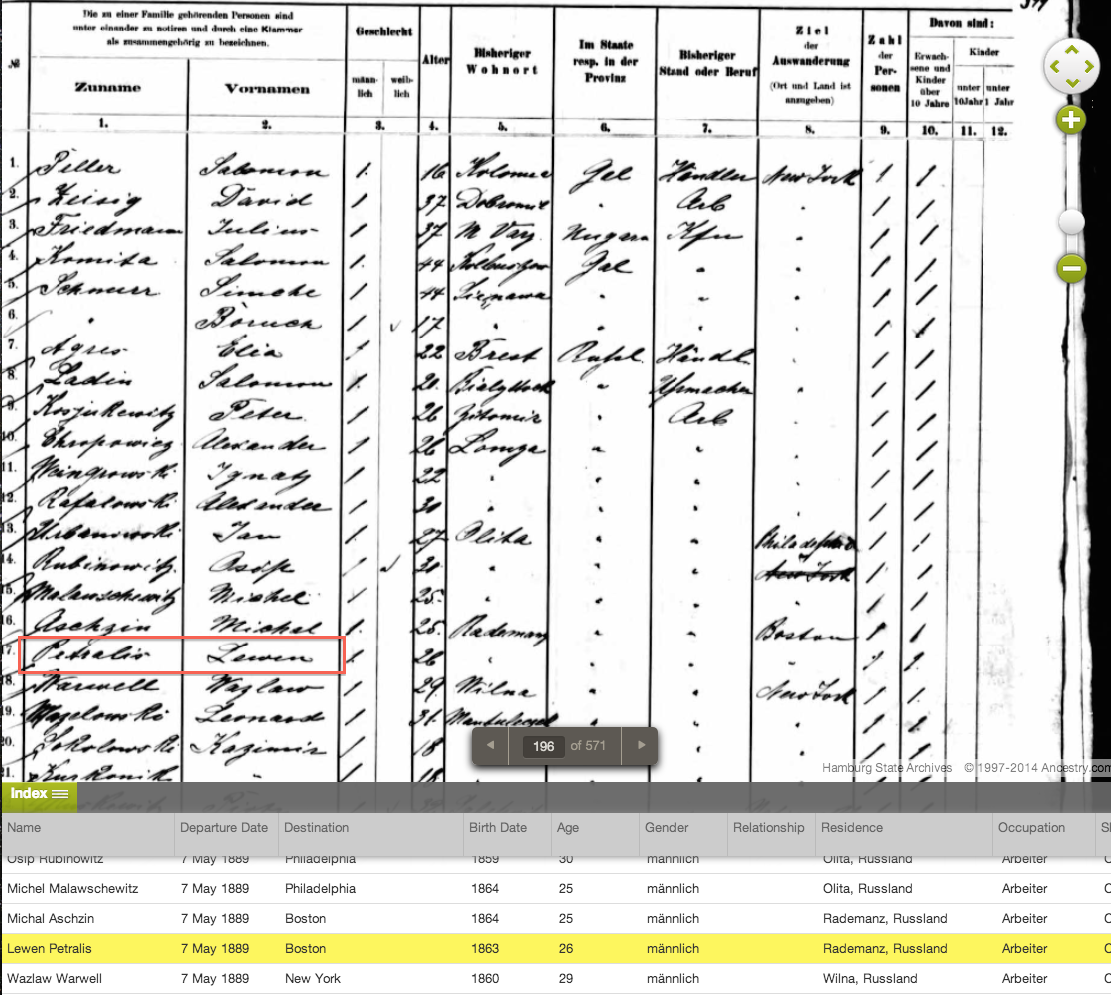 344
Die zu einer Familie gehörenden Personen sind
unter einander zu notiren und durch eine Klammer
als zusammengehörig zu bezeichnen.
Zuname
Vornamen
Geschlecht
männ-
lich
weib-
lich
Alter
Bisheriger
Wohnort
Im Staate
resp. in der
Provinz
Bisheriger
Stand oder Beruf
Ziel
der
Auswanderung
(Ort und Land ist
anzugeben)
Zahl
der
Per-
sonen
Davon sind:
Erwach-
sene und
Kinder
über
10 Jahre
Kinder
unter
10Jahr
unter
1 Jahr
№ 1. 2. 3. 4. 5. 6. 7. 8. 9. 10. 11. 12.
1. Peller Salomon 1. 16 Kolomea Gal Händler New York 1 1
2. Zeisig David 1 37 Dobromil " Arb " 1 1
3. Friedmann Julius 1 37 M Vary Ungarn Kfm " 1 1
4. Komita Salomon 1. 44 Gal " " 1 1
5. Schnurr Simche 1 44 Sieniawa " " " 1 1
6. " Boruch 1 17 " " " " 1 1
7. Agres Elia 1 22 Brest Russl. Händl. " 1 1
8. Ladin Salomon 1. 20. Bialystock " Uhrmacher " 1 1
9. Kosjukewitz Peter 1 26 Zitomir " Arb " 1 1
10. Chropowicz Alexander 1 26 Lomza " " " 1 1
11. Weingrowski Ignatz 1 22 " " " " 1 1
12. Rafalowski Alexander 1 30 " " " " 1 1
13. Urbanowski Jan 1 27 Olita " " Philadelphia 1 1
14. Rubinowitz. Osip 1 30 " " " New York 1 1
15. Malawschewitz Michel 1 25. " " " " 1 1
16. Aschzin Michal 1. 25. Rademanz " " Boston 1 1
17. Petralis Lewen 1 26 " " " " 1 1.
18. Warwell Wazlaw 1 29 Wilna " " New York 1 1.
19. Mazelowski Leonard 1 31. " " " 1 1
20. Sokolowski Kazimir 1 18 " " " 1 1
21. Kurkonik " 1 18
196 of 571
Hamburg State Archives © 1997-2014 Ancestry.com
Index
Name Departure Date Destination Birth Date Age Gender Relationship Residence Occupation
Osip Rubinowitz 7 May 1889 Philadelphia 1859 30 männlich Olita, Russland Arbeiter
Michel Malawschewitz 7 May 1889 Philadelphia 1864 25 männlich Olita, Russland Arbeiter
Michal Aschzin 7 May 1889 Boston 1864 25 männlich Rademanz, Russland Arbeiter
Lewen Petralis 7 May 1889 Boston 1863 26 männlich Rademanz, Russland Arbeiter
Wazlaw Warwell 7 May 1889 New York 1860 29 männlich Wilna, Russland Arbeiter